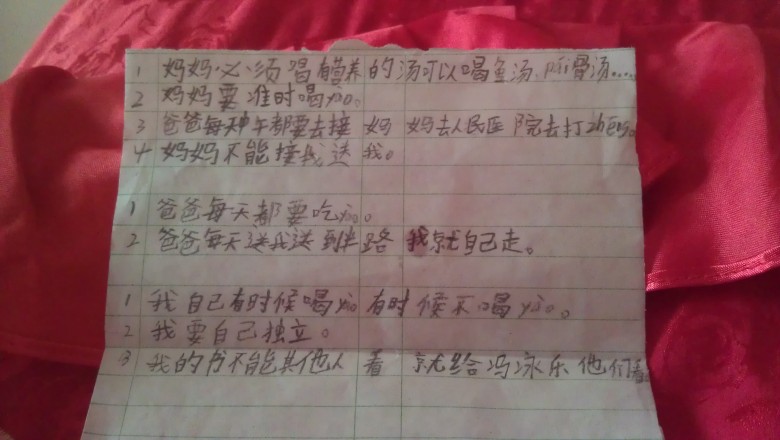 1 妈妈必须唱有营养的汤可以喝鱼汤.pái骨汤……
2 妈妈要准时喝yào。
3 爸爸每天中午都要去接妈妈去人民医院去打zhēn。
4 妈妈不能接我送我。
1 爸爸每天都要吃yào。
2 爸爸每天送我送到半路我就自己走。
1 我自己有时候喝yào有时候不喝yào。
2 我要自己独立。
3 我的书不能其他人看就给冯泳乐他们看